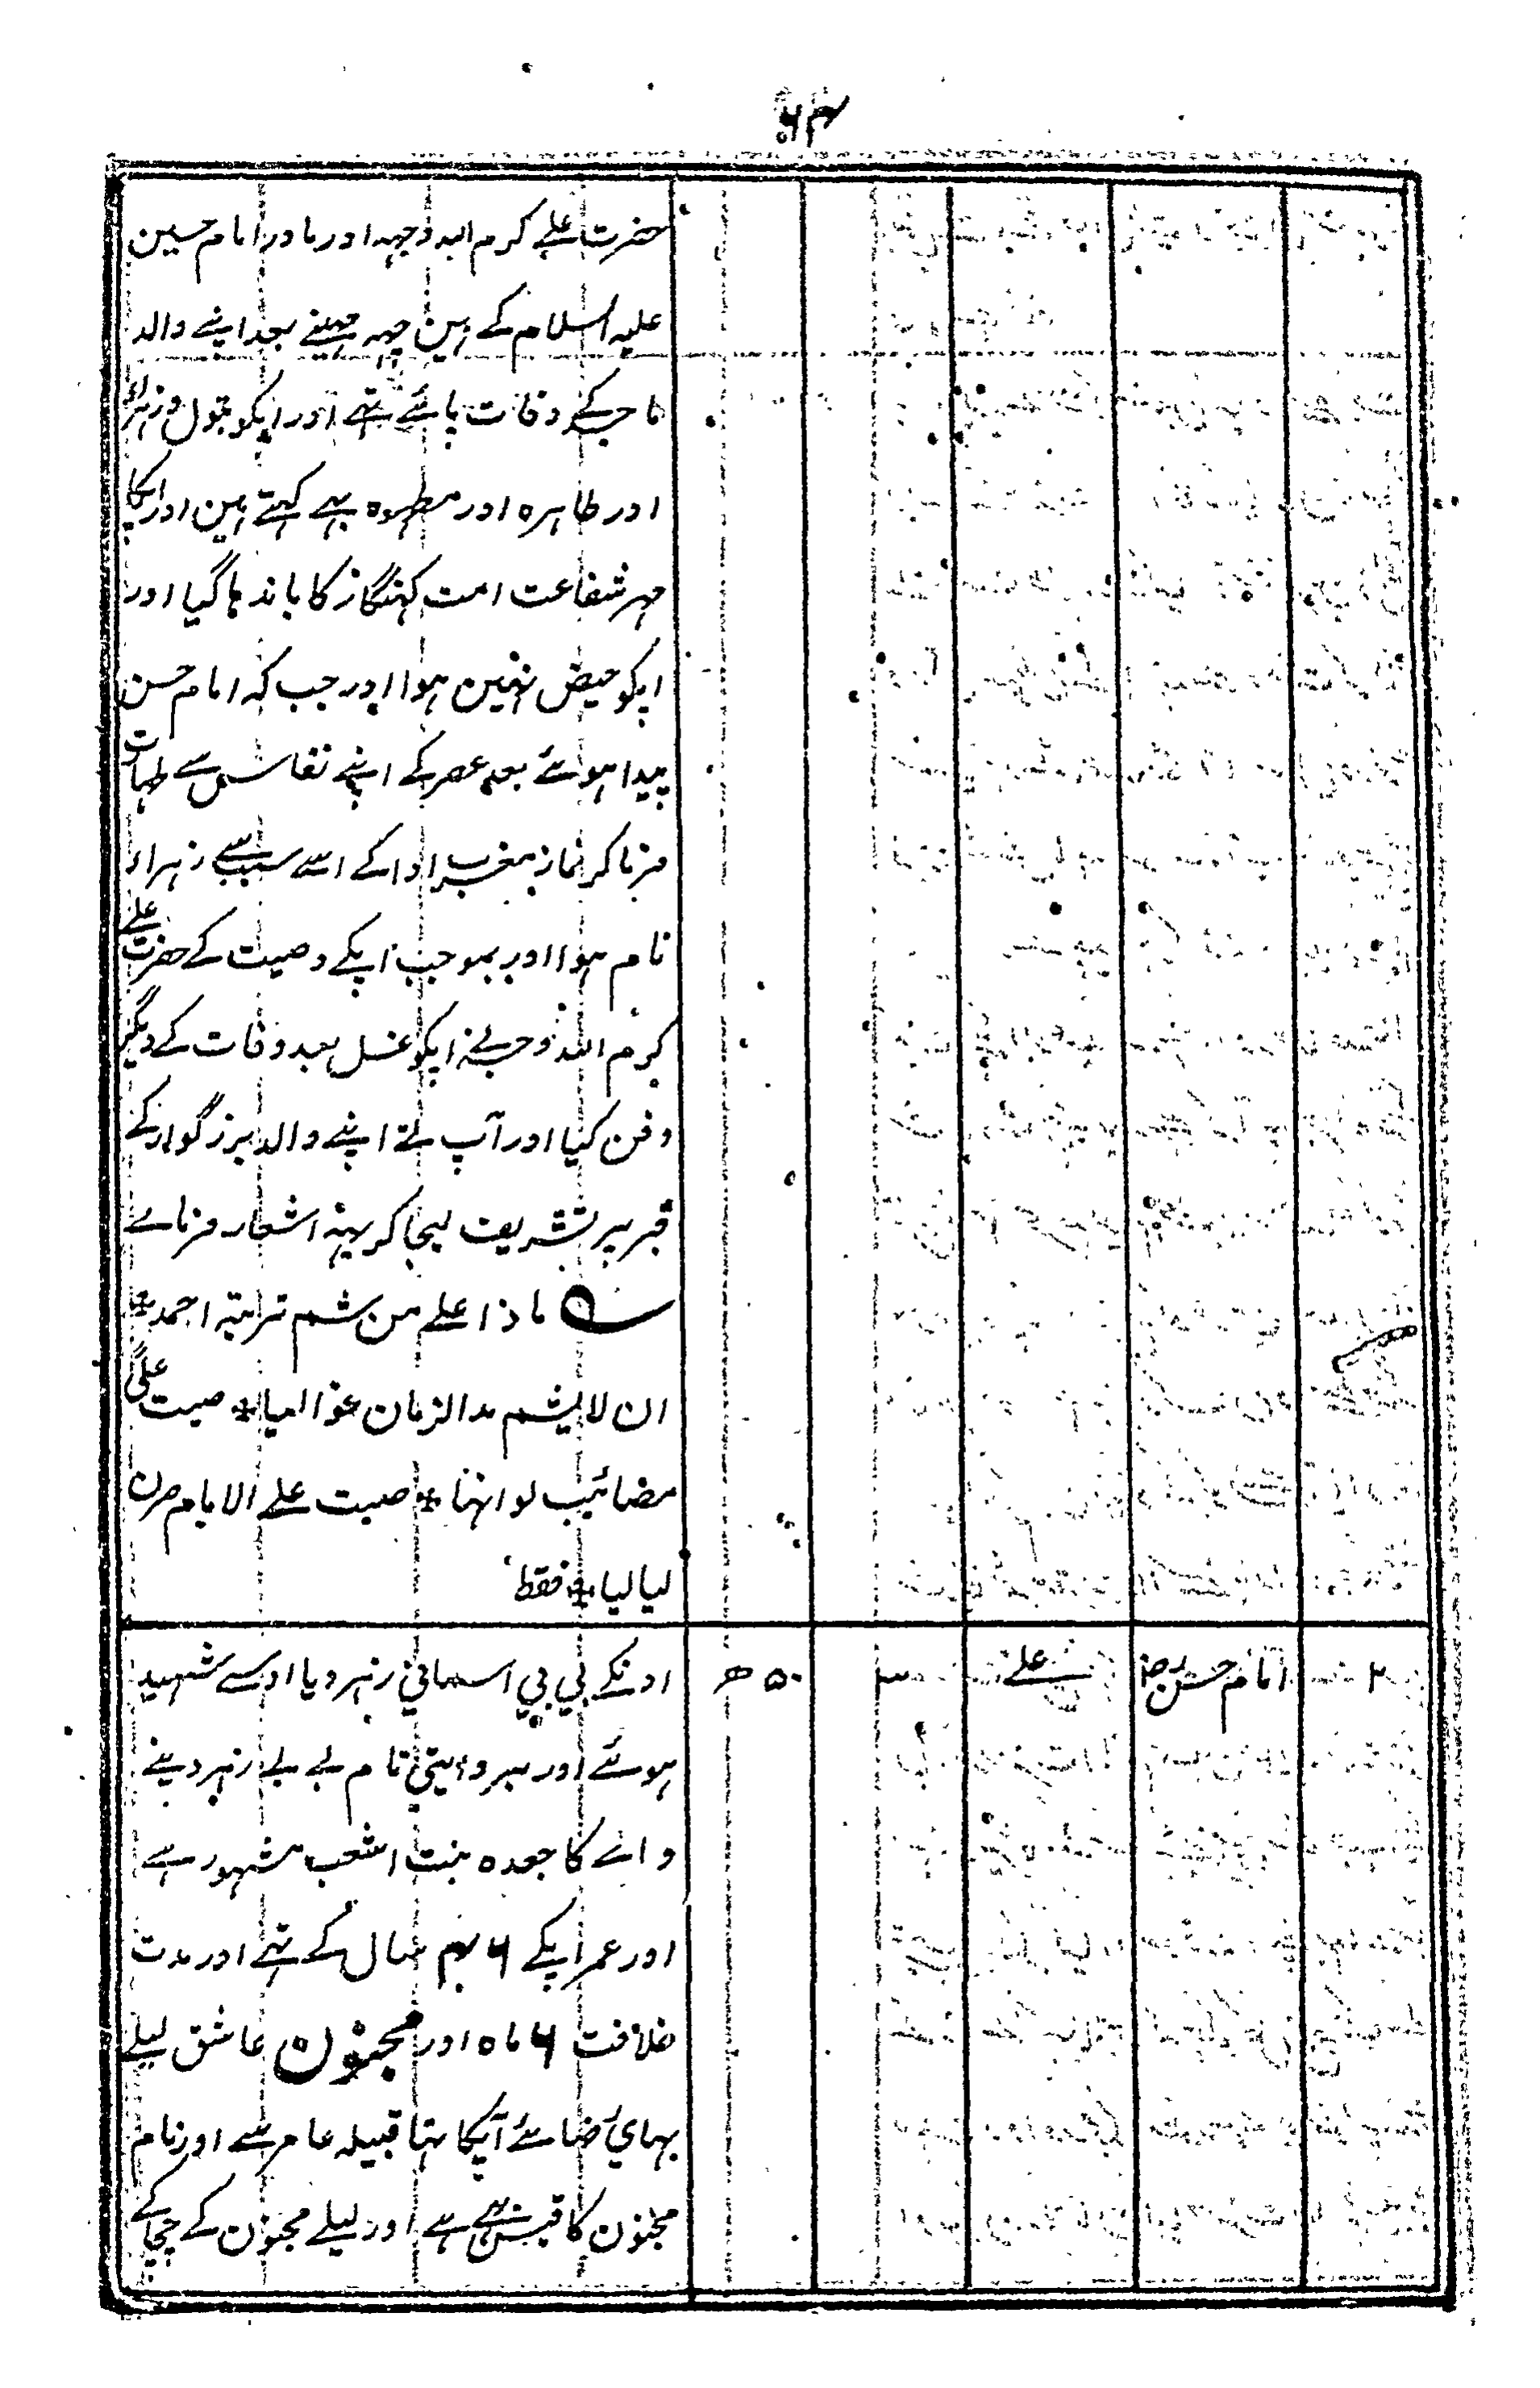 ۶۴
حضرت علے کرم اللہ وجہہ اور مادر امام حسین
علیہ السلام کے ہین چہہ مہینے بعد اپنے والد
ماجد کے وفات پائے تہے اور اپکو بتول و زہرا
اور طاہرہ اور مطہرہ بہے کہتے ہین اور اپکا
مہر شفاعت امت کہنگار کا باندہا گیا اور
اپکو حیض نہین ہوا اور جب کہ امام حسن
پیدا ہوئے بعد عصر کے اپنے نفاس سے طہارت
فرما کر نماز مغرب ادا کے اسے سبب سے زہراء
نام ہوا اور بموجب اپکے وصیت کے حضرت علے
کرم اللہ وجہہ نے اپکو غسل بعد وفات کے دیگر
دفن کیا اور آپ نے اپنے والد بزرگوار کے
قبر پر تشریف لیجا کر یہہ اشعار فرمائے
ماذا علے من شم تربتہ احمد
ان لا یشم مدالزمان غوالیا صبت علی
مضائیب لو انہا صبت علے الایام صرن
لیالیا فقط
۲ امام حسن رض علے ۳ ۵۰ ھ اونکے بی بی اسمائی زہر دیا اوسے شہید
ہوئے اور بروایتی نام بی بی زہر دینے
والے کا جعدہ بنت اشعب مشہور ہے
اور عمر اپکے ۴۶ سال کے تہے اور مدت
خلافت ۶ ماہ اور مجنون عاشق لیلے
بہائی رضائے آپکا تہا قبیلہ عامر سے اور نام
مجنون کا قیس ہے اور لیلے مجنون کے چچا کے